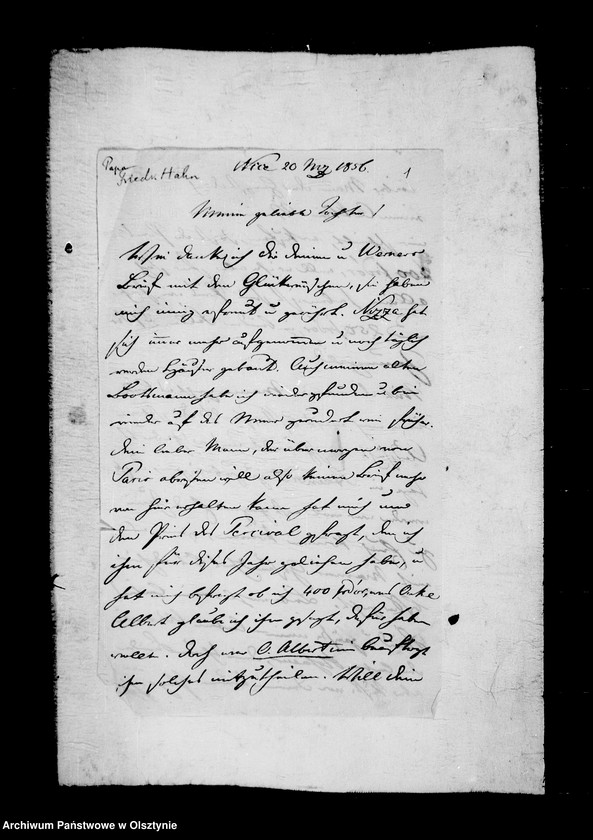 Papa
Friedr. Hahn
Nice 20 Mz 1856.
1
Meine geliebte Tochter!
dank ich dir deinen u Werners
Brief mit den Glückwünschen, sie haben
mich innig erfreut u gerührt. Nizza hat
sich immer mehr aufgenommen u noch täglich
werden Häuser gebaut. Auch meinen alten
Bootsmann habe ich wiedergefunden u bin
wieder auf das Meer gerudert wie früher.
Dein lieber Mann, der übermorgen von
Paris abreisen will also keinen Brief mehr
von hier erhalten kann hat mich um
den Preis des Percival gefragt, den ich
ihm für dieses Jahr geliehen habe, u
hat mich befragt ob ich 400 Onkel
Albert glaube ich ihm gesagt, dafür haben
wollte. Doch von O. Albert beauftragt
ihm solches mitzutheilen. Will dein
Archiwum Państwowe w Olsztynie